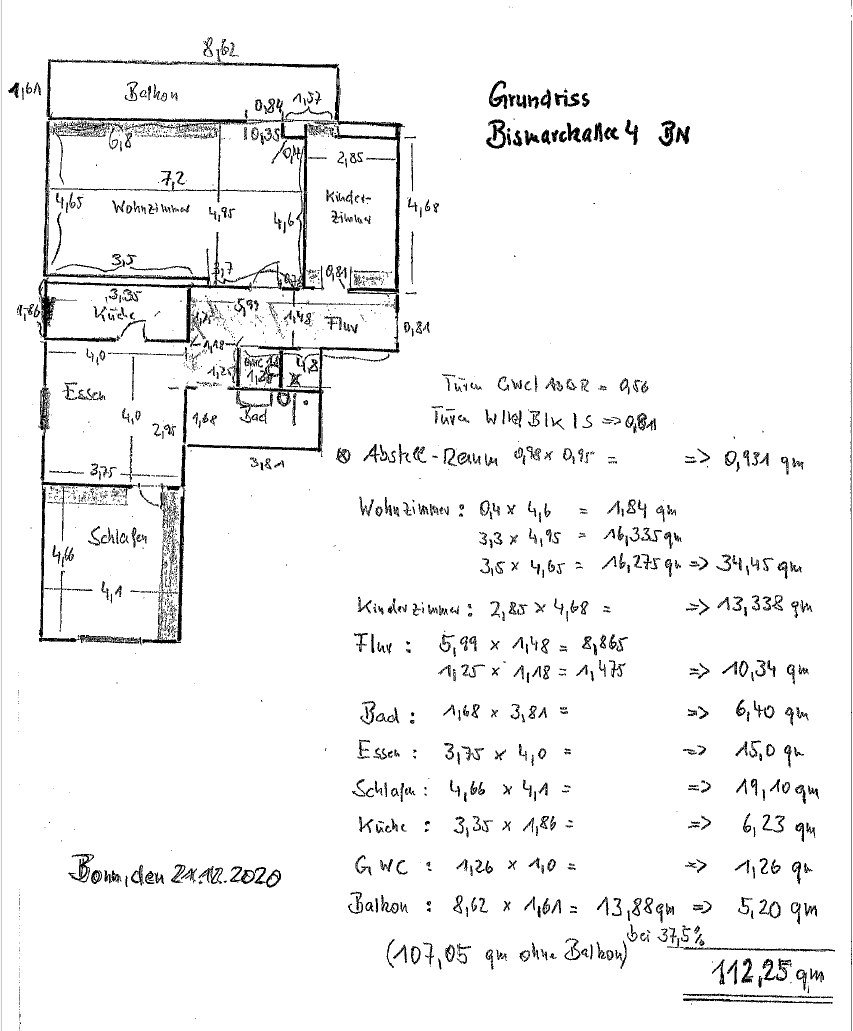 8,62
1,61
Balkon
0,84
1,57
Grundriss
Bismarckallee 4 BN
6,8
0,35
0,4
2,85
7,2
4,65
Wohnzimmer
4,95
4,6
Kinder-
Zimmer
4,68
3,5
3,7
0,81
3,35
Küche
1,86
5,99
1,48
Flur
0,81
4,0
1,18
GWC
1,25
1,26
Essen
4,0
2,95
1,68
Bad
3,75
3,81
Schlafen
4,66
4,1
Türen GWC/ = 0,56
Türen W/K/B/K/S => 0,81
⊗ Abstell-Raum 0,98 x 0,95 = => 0,931 qm
Wohnzimmer: 0,4 x 4,6 = 1,84 qm
3,3 x 4,95 = 16,335 qm
3,5 x 4,65 = 16,275 qm => 34,45 qm
Kinderzimmer: 2,85 x 4,68 = => 13,338 qm
Flur: 5,99 x 1,48 = 8,865
1,25 x 1,18 = 1,475 => 10,34 qm
Bad: 1,68 x 3,81 = => 6,40 qm
Essen: 3,75 x 4,0 = => 15,0 qm
Schlafen: 4,66 x 4,1 = => 19,10 qm
Küche: 3,35 x 1,86 = => 6,23 qm
GWC: 1,26 x 1,0 = => 1,26 qm
Balkon: 8,62 x 1,61 = 13,88 qm => 5,20 qm
bei 37,5%
(107,05 qm ohne Balkon)
112,25 qm
Bonn, den 21.12.2020